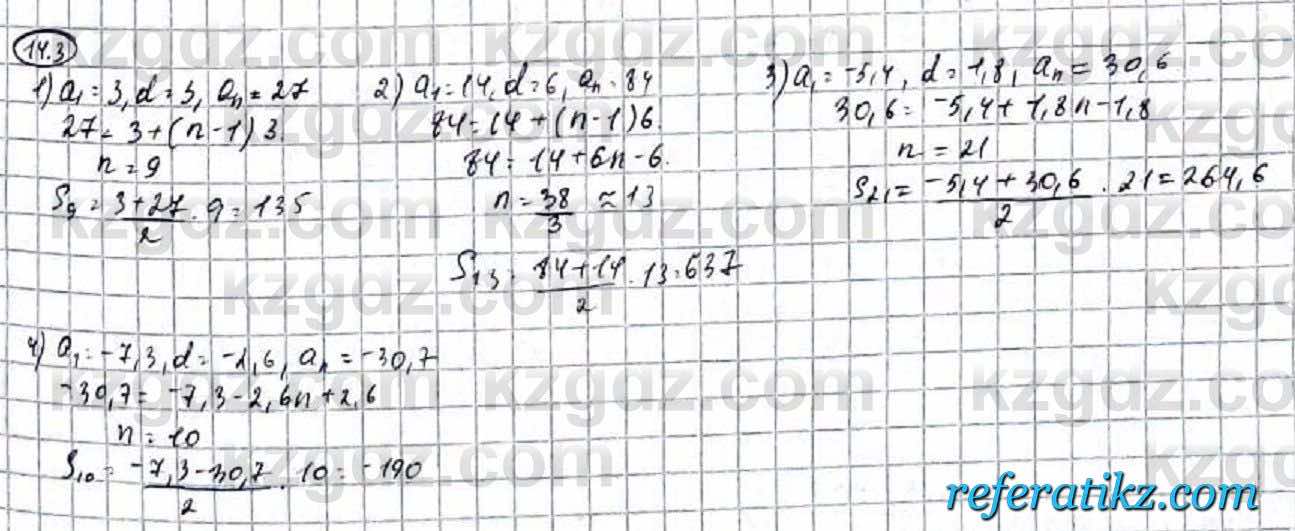 14.3
1) a₁ = 3, d = 3, aₙ = 27
27 = 3 + (n-1)3.
n = 9
S₉ = (3+27)/2 · 9 = 135
2) a₁ = 14, d = 6, aₙ = 84
84 = 14 + (n-1)6.
84 = 14 + 6n - 6.
n = 38/3 ≈ 13
S₁₃ = (84+14)/2 · 13 = 637
3) a₁ = -5,4, d = 1,8, aₙ = 30,6
30,6 = -5,4 + 1,8n - 1,8
n = 21
S₂₁ = (-5,4 + 30,6)/2 · 21 = 264,6
4) a₁ = -7,3, d = -2,6, aₙ = -30,7
-30,7 = -7,3 - 2,6n + 2,6
n = 10
S₁₀ = (-7,3 - 30,7)/2 · 10 = -190
kzgdz.com
referatikz.com